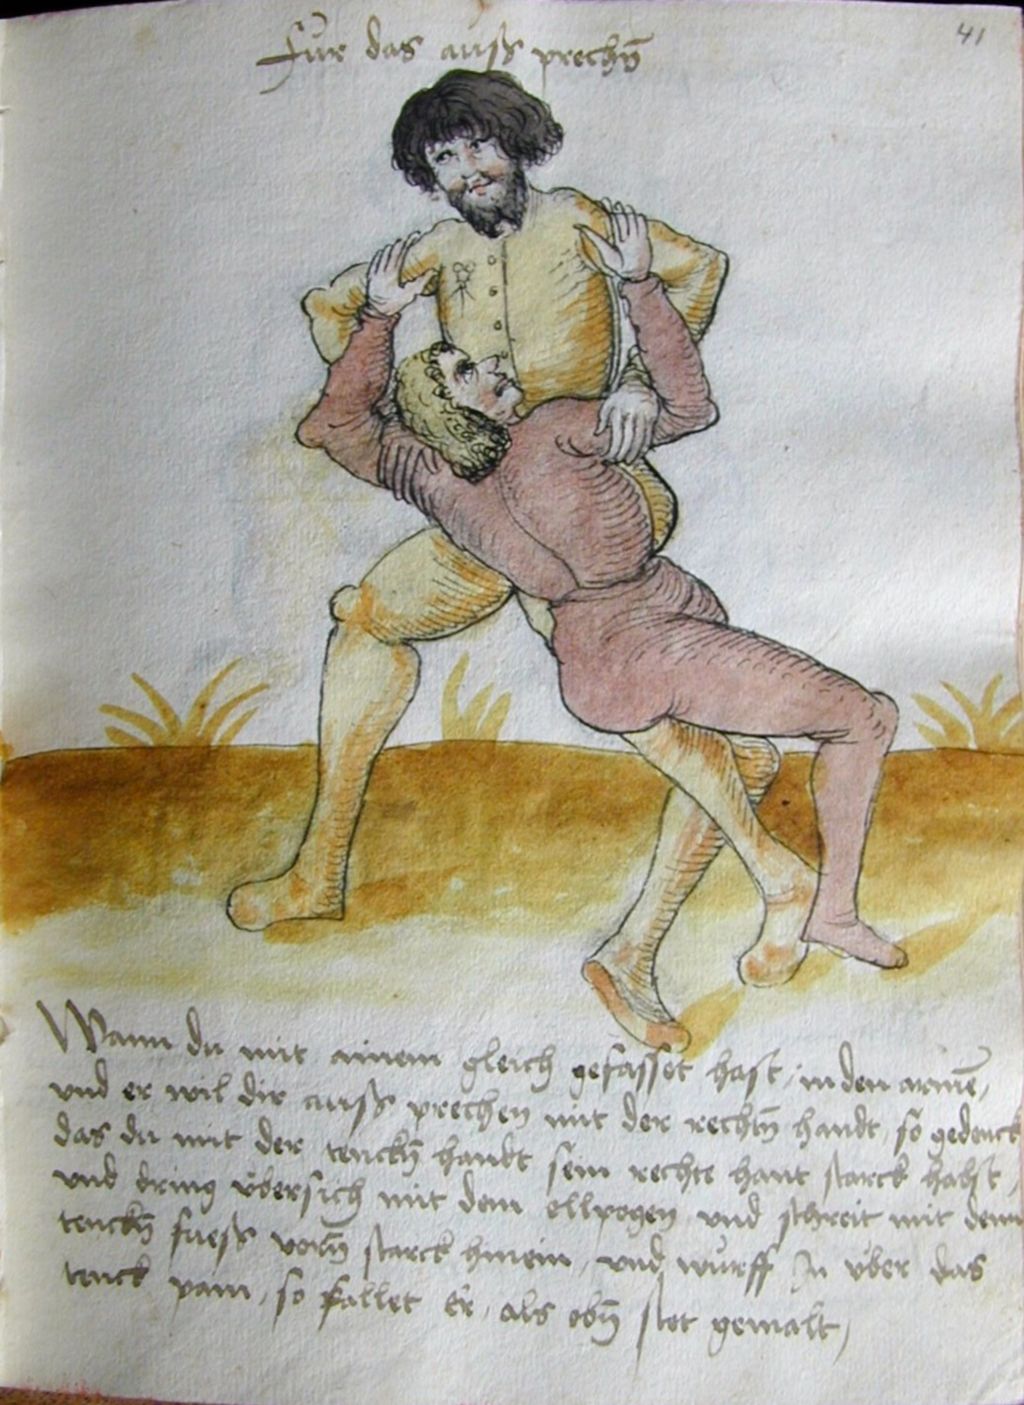 41
Für das auss prechñ
Wann du mit ainem gleich gefasset hast, in den armē,
und er wil dir auss prechen mit der rechtñ handt, so gedenck
das du mit der tenckñ handt sein rechte hant starck habst,
und dring übersich mit dem ellpogen und schreit mit dem
tenckñ fuess vorñ starck hinein, und würff In über das
tenck pain, so fallet Er, als obñ stet gemalt,